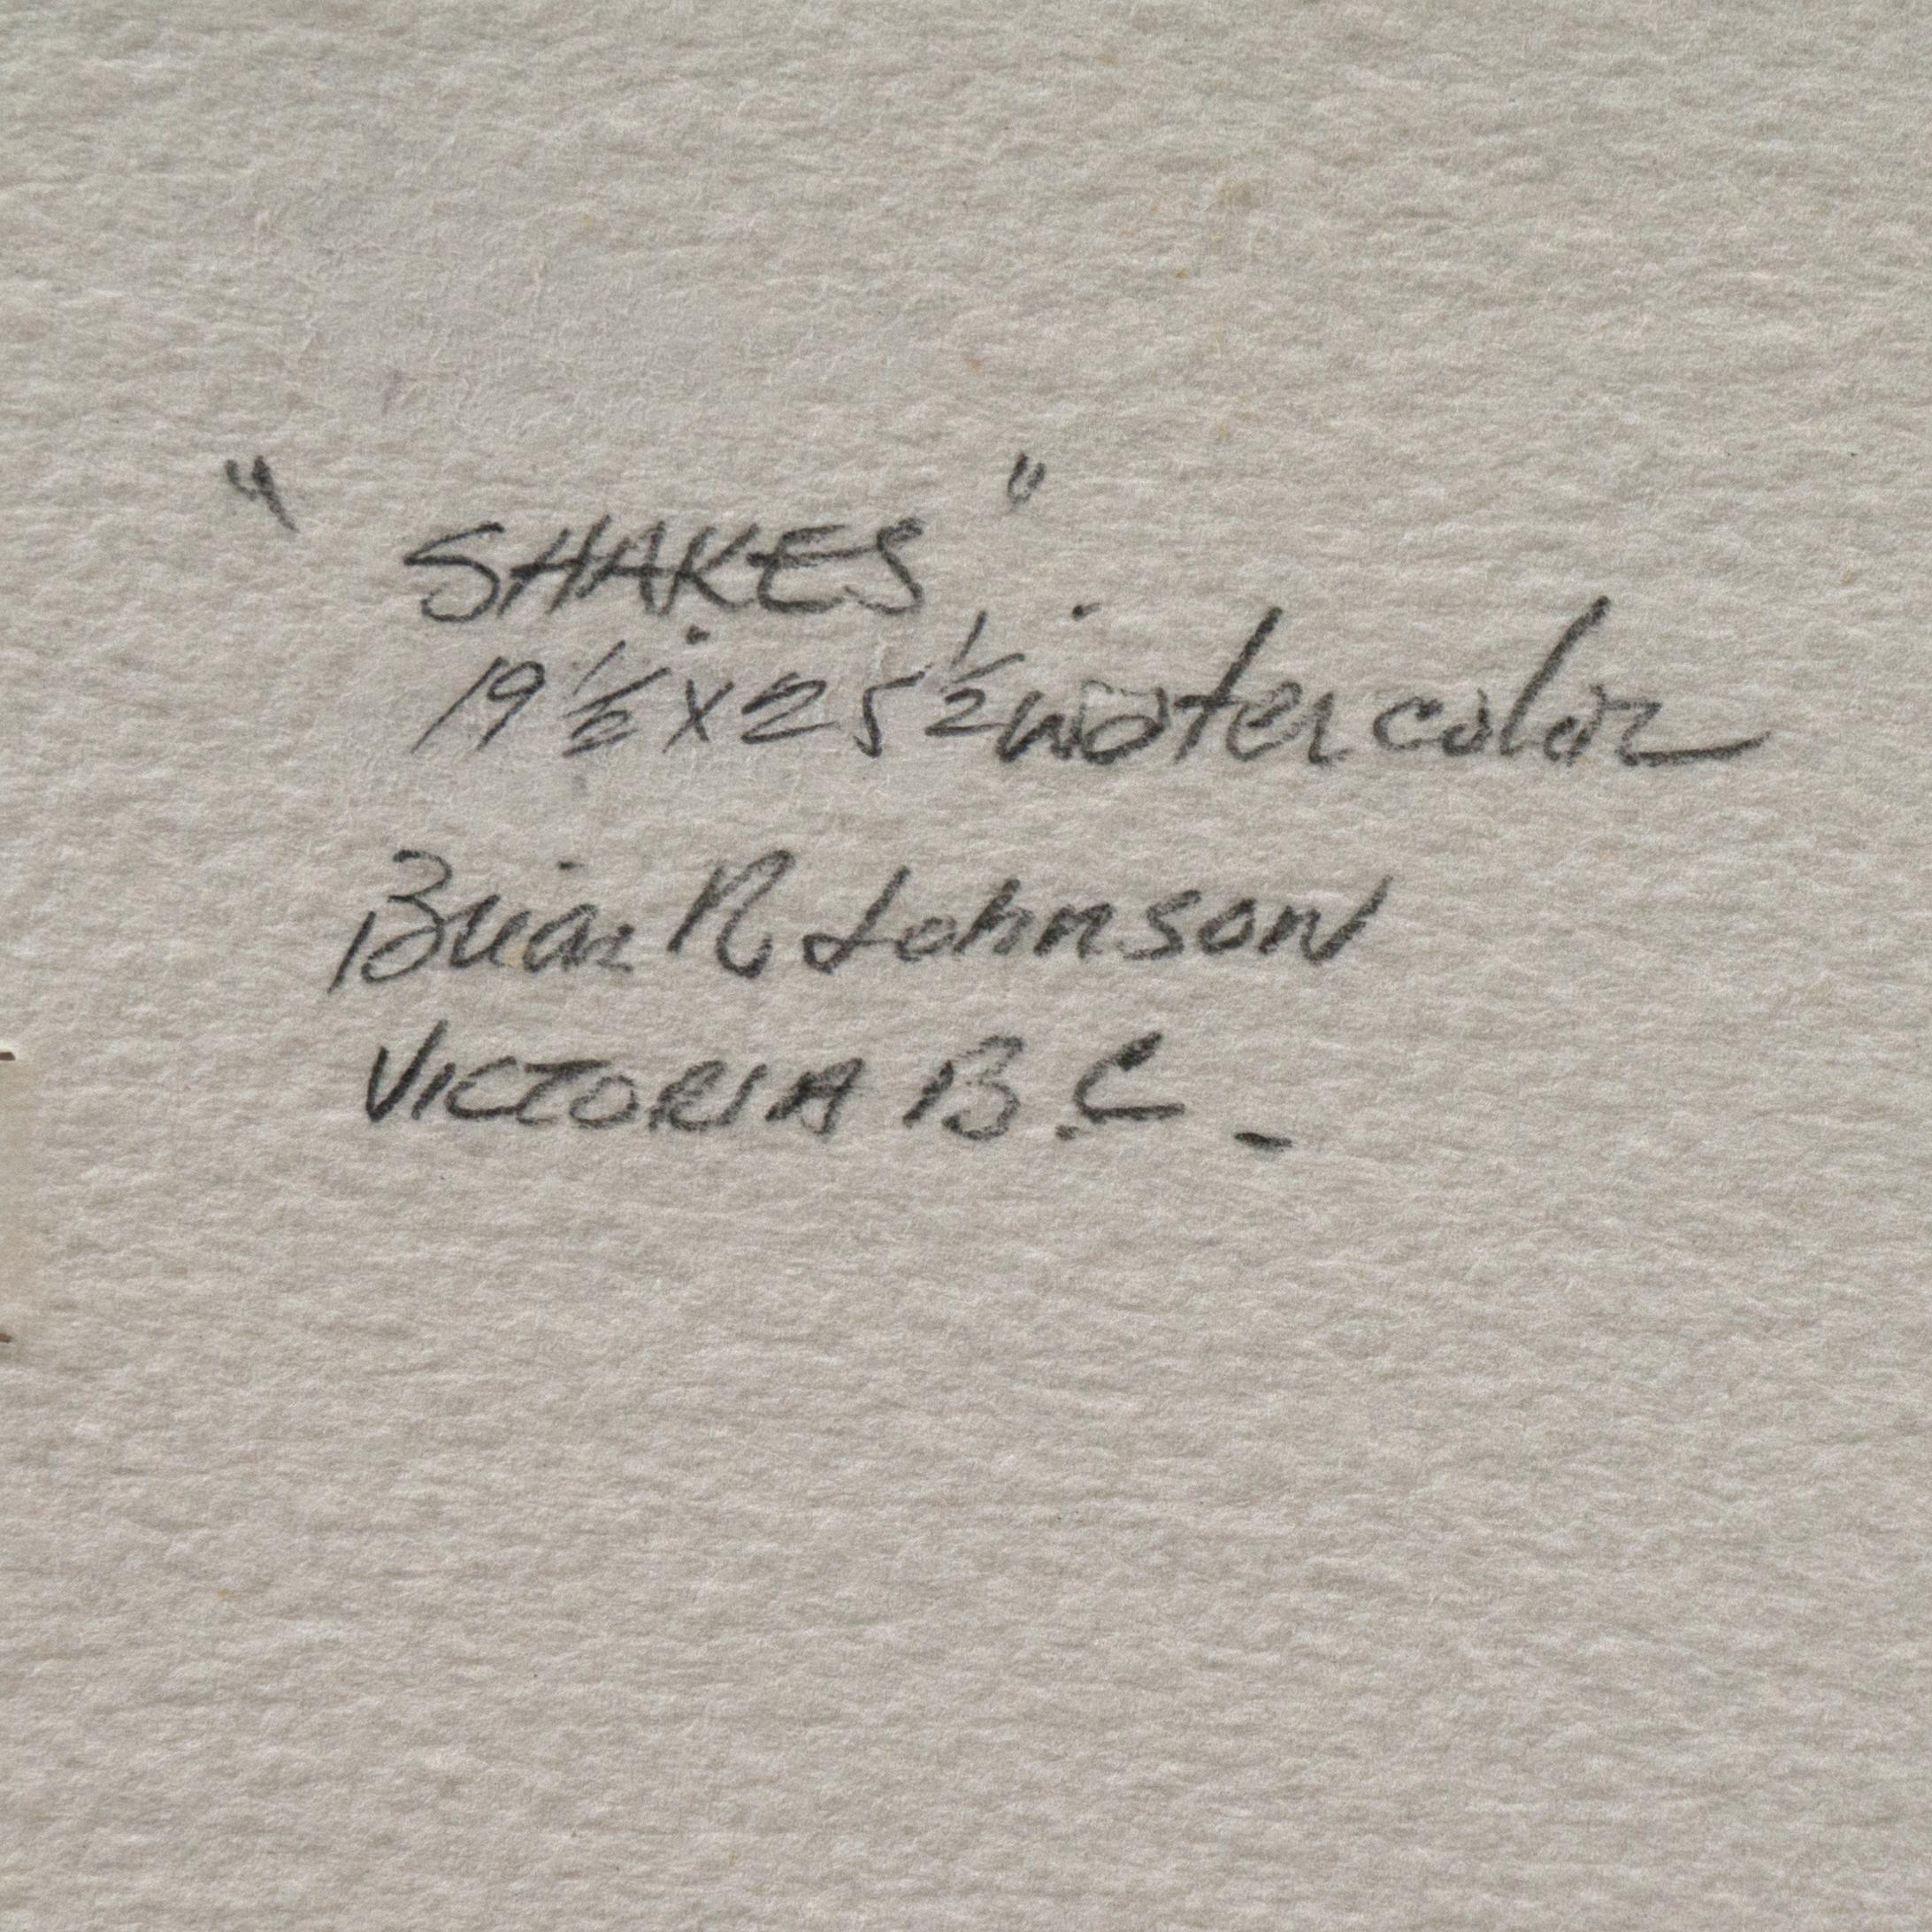 "SHAKES"
19 1/2 x 25 1/2 watercolor
Brian R Johnson
VICTORIA B.C.